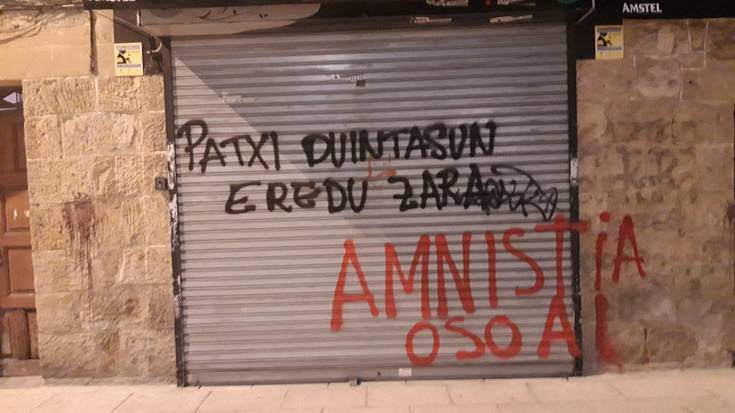 AMSTEL
PATXI DUINTASUN
EREDU ZARA
AMNISTiA
OSOA!